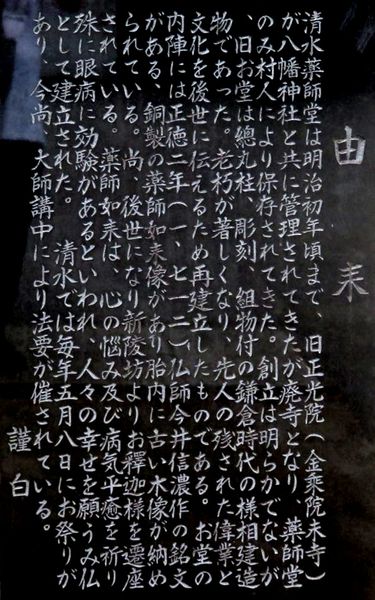 由来
清水薬師堂は明治初年頃まで、旧正光院(金乘院末寺)
が八幡神社と共に管理されてきたが廃寺となり、薬師堂
のみ村人により保存されてきた。創立は明らかでないが
、旧お堂は總丸柱、彫刻、組物付の鎌倉時代の様相建造
物であった。老朽が著しくなり、先人の残された偉業と
文化を後世に伝えるため再建立したものである。お堂の
内陣には正徳二年(一、七一二)仏師今井信濃作の銘文
がある、銅製の薬師如来像があり胎内に古い木像が納め
られている。尚、後世になり新陵坊よりお釋迦様を遷座
されている。薬師如来は、心の悩み及び病気平癒を祈り
殊に眼病に効験があるといわれ、人々の幸せを願うみ仏
として建立された。 清水では毎年五月八日にお祭りが
あり、今尚、大師講中により法要が催されている。
謹白